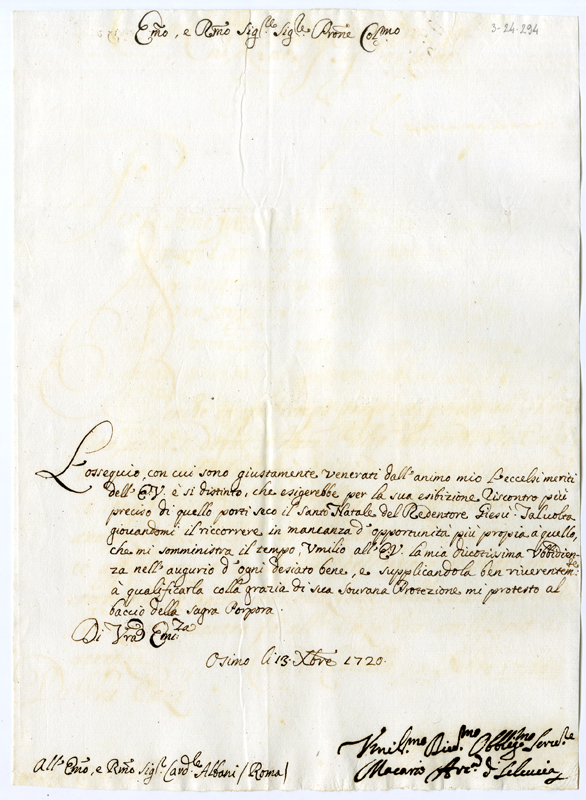 Emo, e Rmo Sigre Sigre Prone Colmo
3-24-294
L'ossequio, con cui sono giustamente venerati dall'animo mio l'eccelsi meriti
dell'E.V. è si distinto, che esigerebbe per la sua esibizione Riscontro più
preciso di quello porti seco il Santo Natale del Redentore Giesù. Talvolta
giovandomi il riccorrere in mancanza d'opportunità più propria a quello,
che mi somministra il tempo, Umilio all'E.V. la mia divotissima Vbbidien-
za nell'augurio d'ogni desiato bene, e supplicandola ben riverentemte
à qualificarla colla grazia di sua Sourana Protezione mi protesto al
baccio della Sagra Porpora.
Di Vra Emiza
Osimo li 13. Xbre 1720.
Vmilmo Divmo Obbligmo Servre
Macario Arc. di
All'Emo, e Rmo Sigr Cardle Albani (Roma)